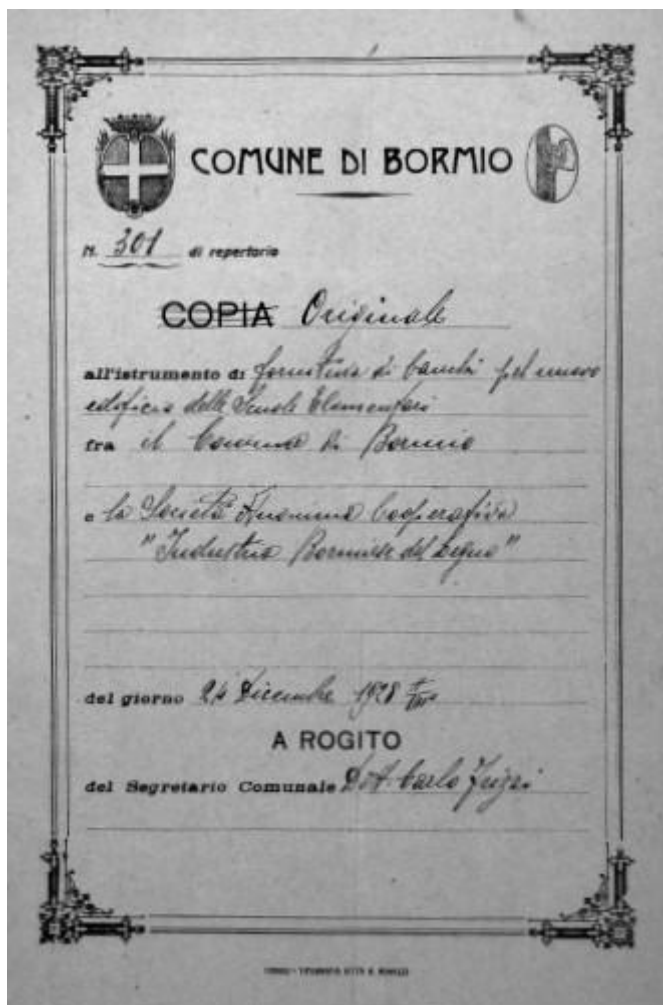 COMUNE DI BORMIO
N. 301 di repertorio
COPIA Originale
all'istrumento di fornitura di banchi pel nuovo
edificio delle Scuole Elementari
fra il Comune di Bormio
e la Società Anonima Cooperativa
"Industria Bormiese del Legno"
del giorno 24 Dicembre 1928
A ROGITO
del Segretario Comunale Dott. Carlo